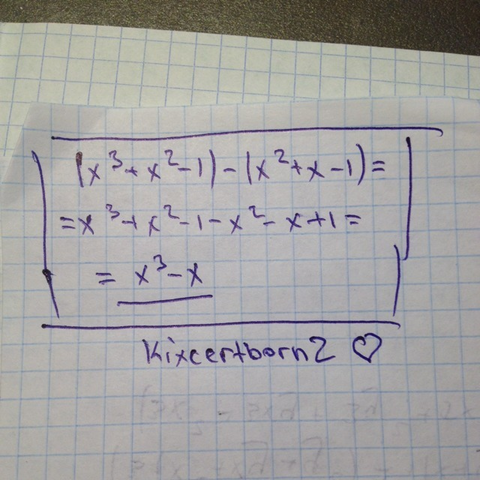 (x³+x²-1)-(x²+x-1)=
=x³+x²-1-x²-x+1=
=x³-x
Kixcertborn2 ♡